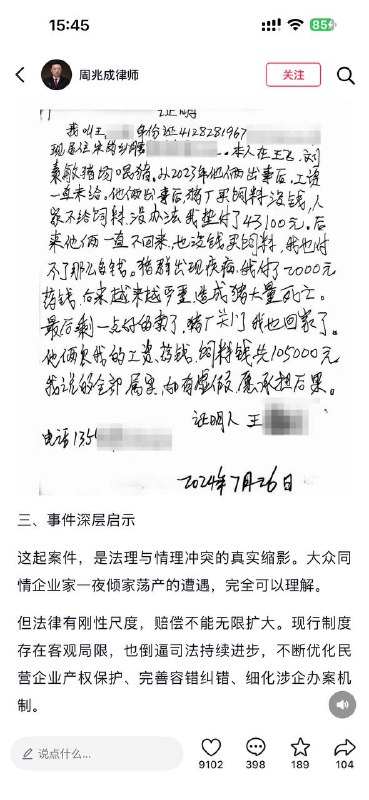 15:45
85
周兆成律师
关注
证明
我叫王 身份证4128281967
现居住
本人在王飞、刘
秉敏猪场喂猪，从2023年他俩出事后，工资
一直未给。他俩出事后，猪厂买饲料没钱，人
家不给饲料，没办法我垫付了43100元。后
来他俩一直不回来，也没钱买饲料，我也付
不了那么多钱。猪群出现疾病，我付了2000元
药钱，后来越来越严重，造成猪大量死亡。
最后剩一点付的卖了，猪厂关门我也回家了。
他俩欠我的工资、药钱、饲料钱共105000元
我说的全部属实，如有虚假，愿承担后果。
证明人 王
电话 135
2024年7月26日
三、事件深层启示
这起案件，是法理与情理冲突的真实缩影。大众同
情企业家一夜倾家荡产的遭遇，完全可以理解。
但法律有刚性尺度，赔偿不能无限扩大。现行制度
存在客观局限，也倒逼司法持续进步，不断优化民
营企业产权保护、完善容错纠错、细化涉企办案机
制。
说点什么...
9102
398
189
104